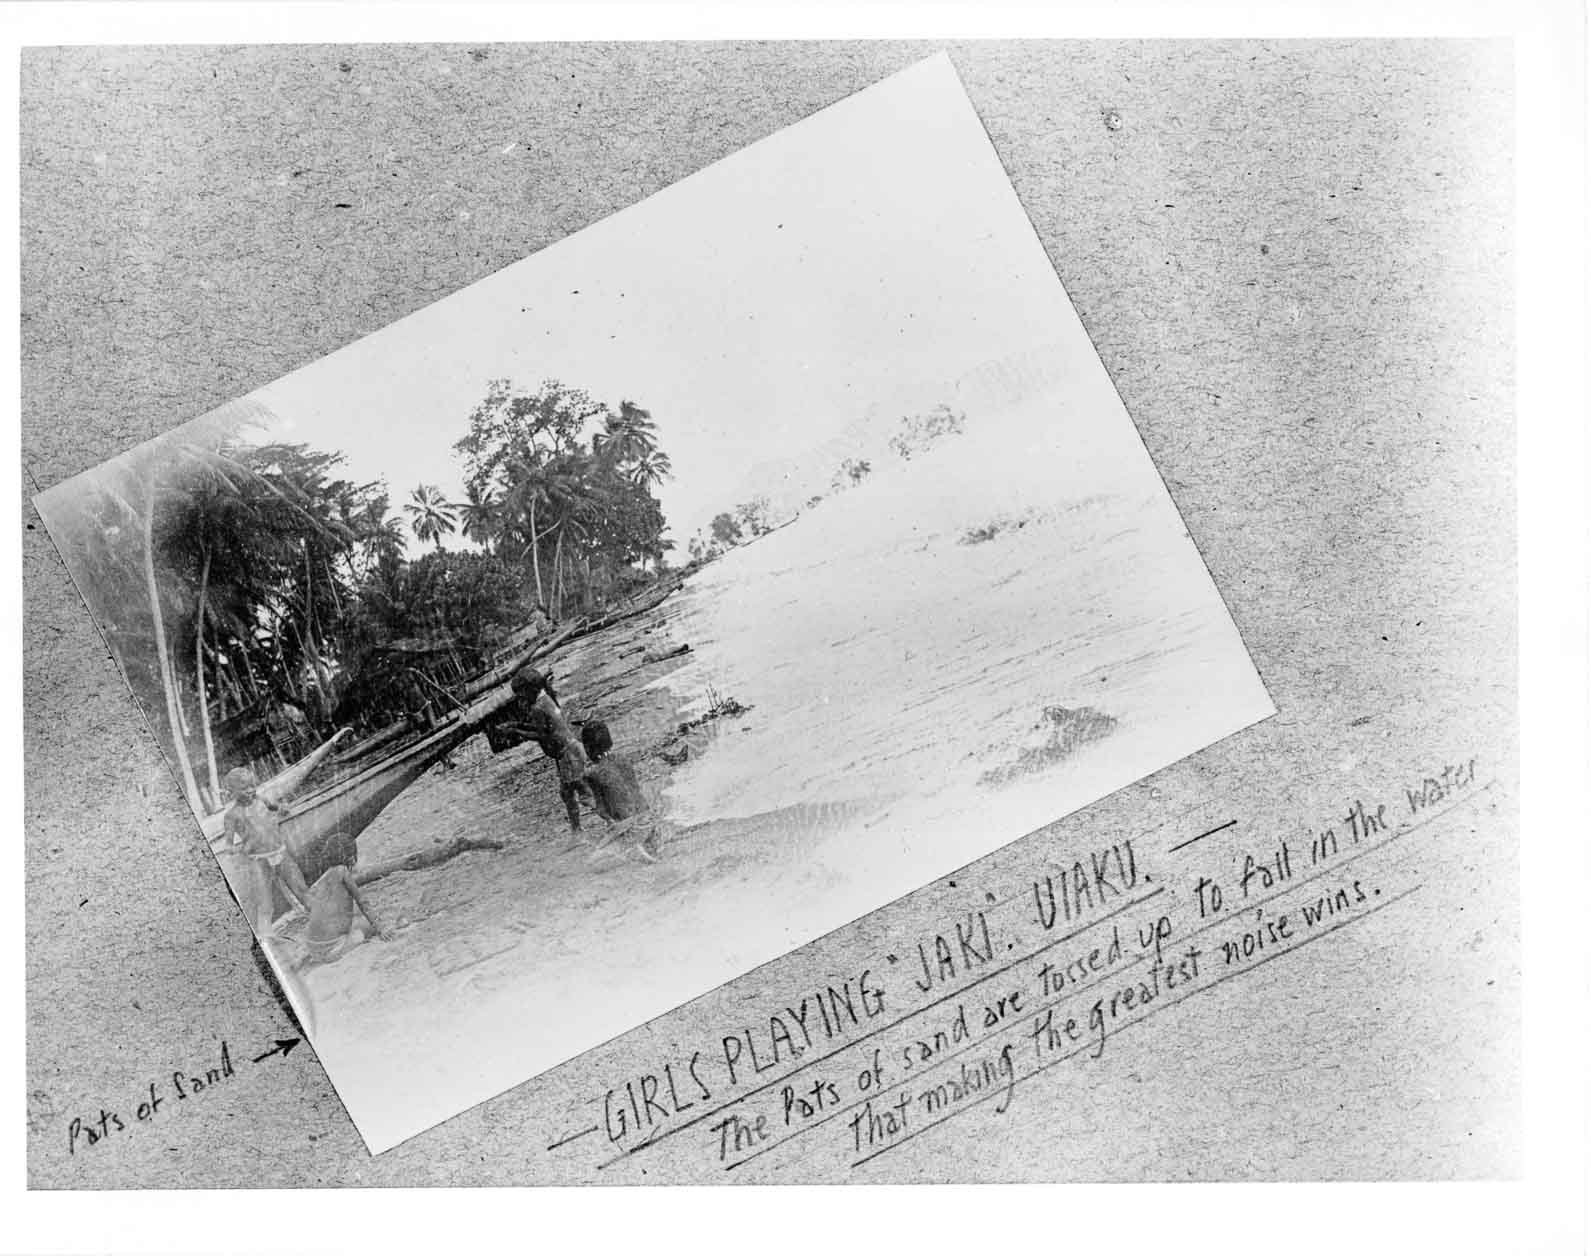 Pats of Sand →
— GIRLS PLAYING "JAKI". UIAKU. —
The Pats of sand are tossed up to fall in the water
that making the greatest noise wins.